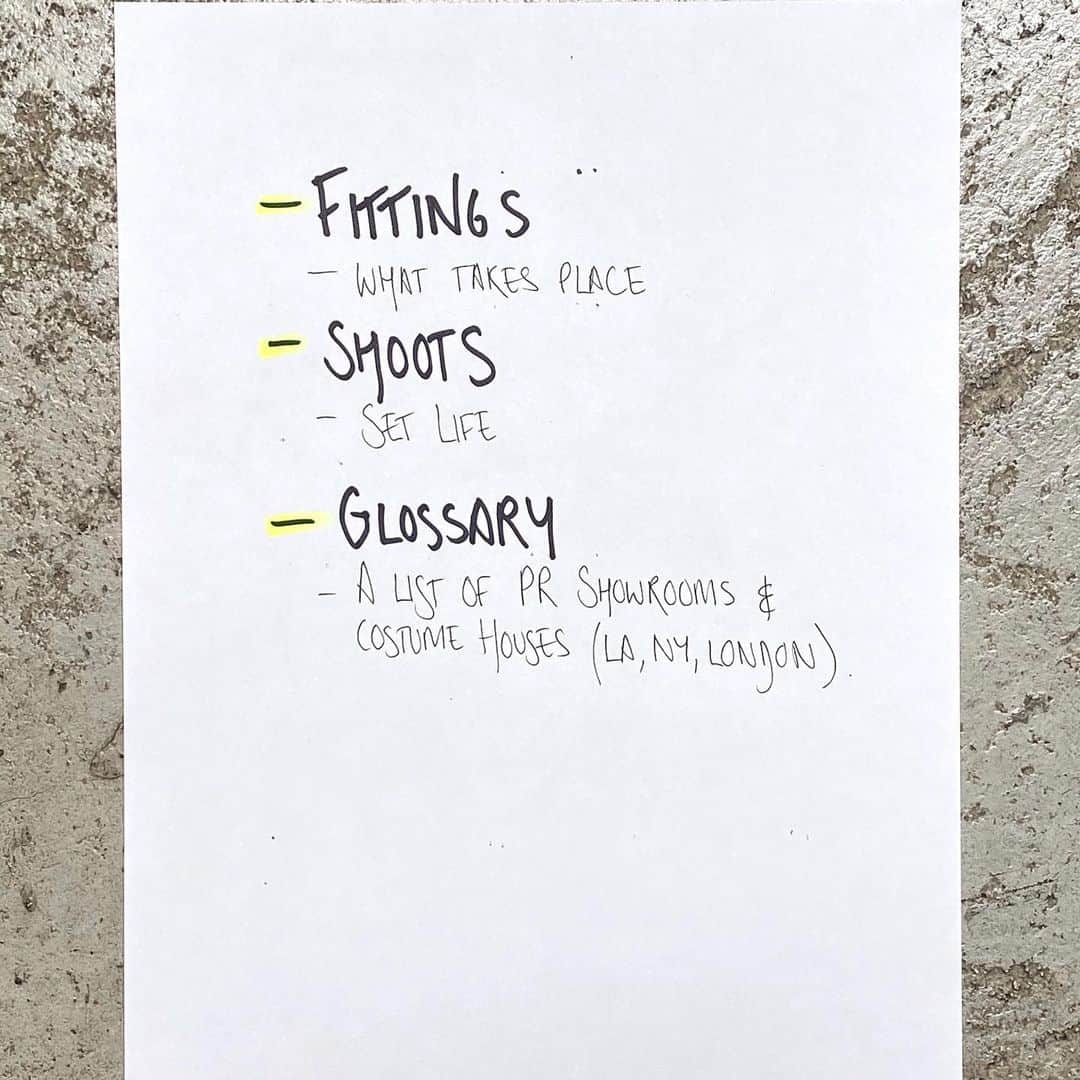 - FITTINGS
- WHAT TAKES PLACE
- SHOOTS
- SET LIFE
- GLOSSARY
- A LIST OF PR SHOWROOMS &
COSTUME HOUSES (LA, NY, LONDON).